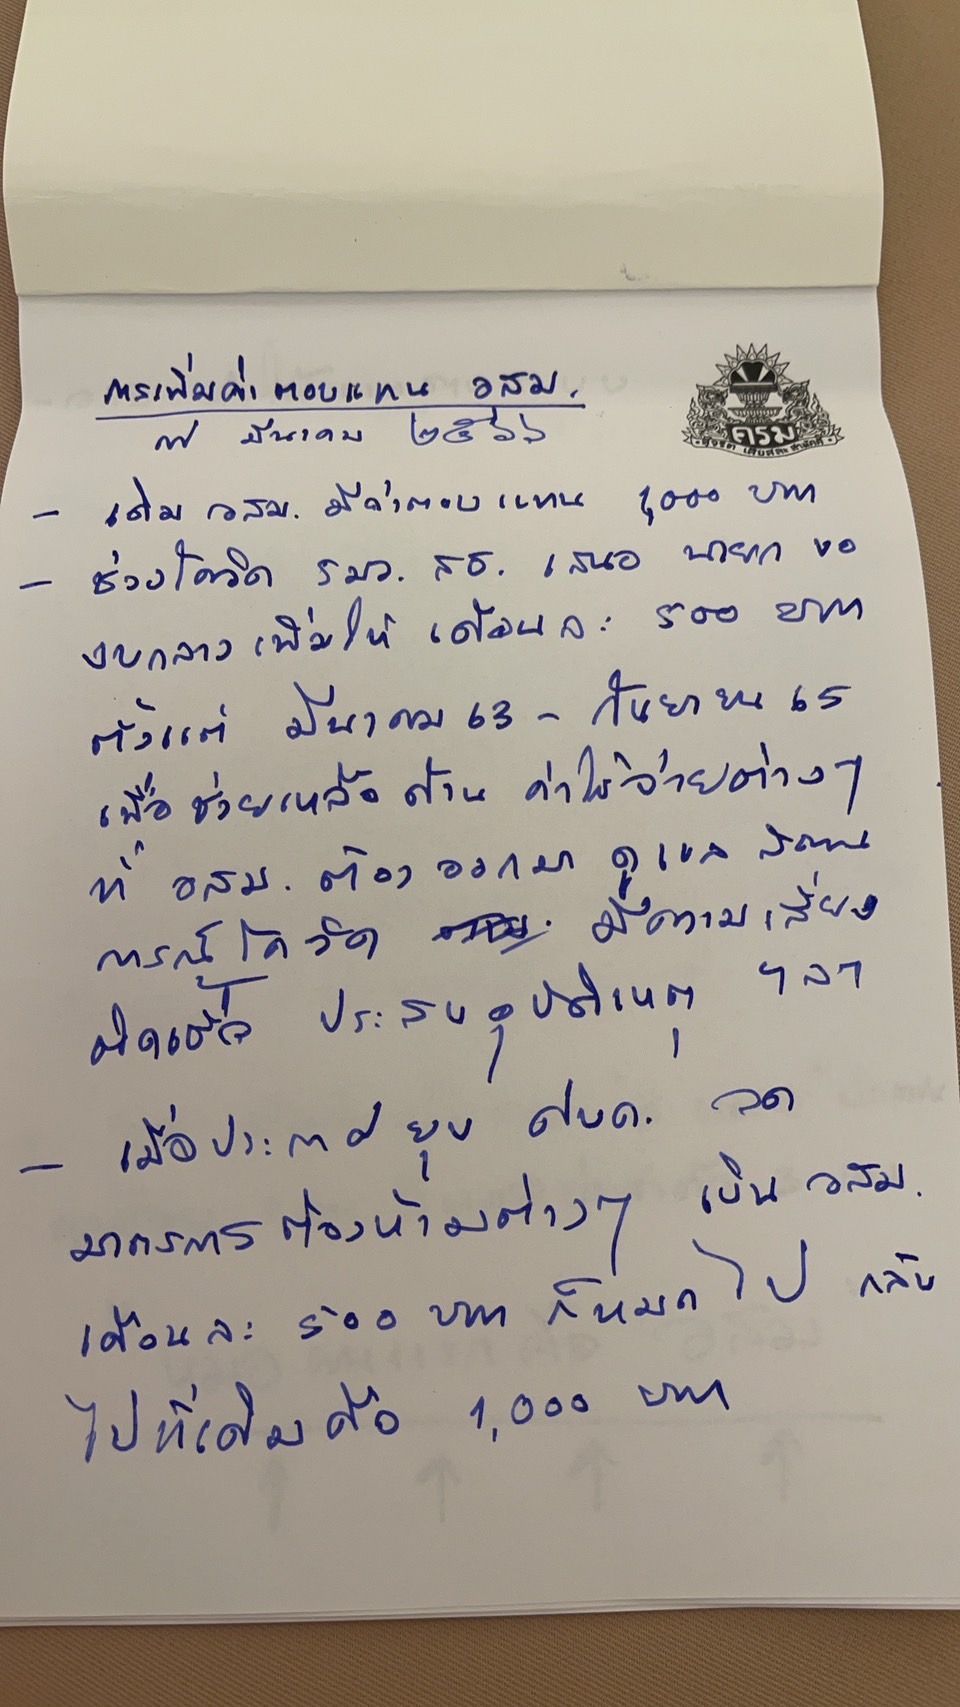 การเพิ่มค่าตอบแทน อสม.
๗ มีนาคม ๒๕๖๖
ครม
- เดิม อสม. มีค่าตอบแทน 1,000 บาท
- ช่วงโควิด รมว. สธ. เสนอ นายก ขอ
งบกลางเพิ่มให้ เดือนละ 500 บาท
ตั้งแต่ มีนาคม 63 - กันยายน 65
เพื่อช่วยเหลือด้าน ค่าใช้จ่ายต่างๆ
ที่ อสม. ต้องออกมา ดูแล สถาน
การณ์โควิด มีความเสี่ยง
ติดเชื้อ ประสบอุบัติเหตุ ฯลฯ
- เมื่อประกาศยุบ ศบค. ลด
มาตรการต้องห้ามต่างๆ เงิน อสม.
เดือนละ 500 บาท ก็หมดไป กลับ
ไปที่เดิมคือ 1,000 บาท